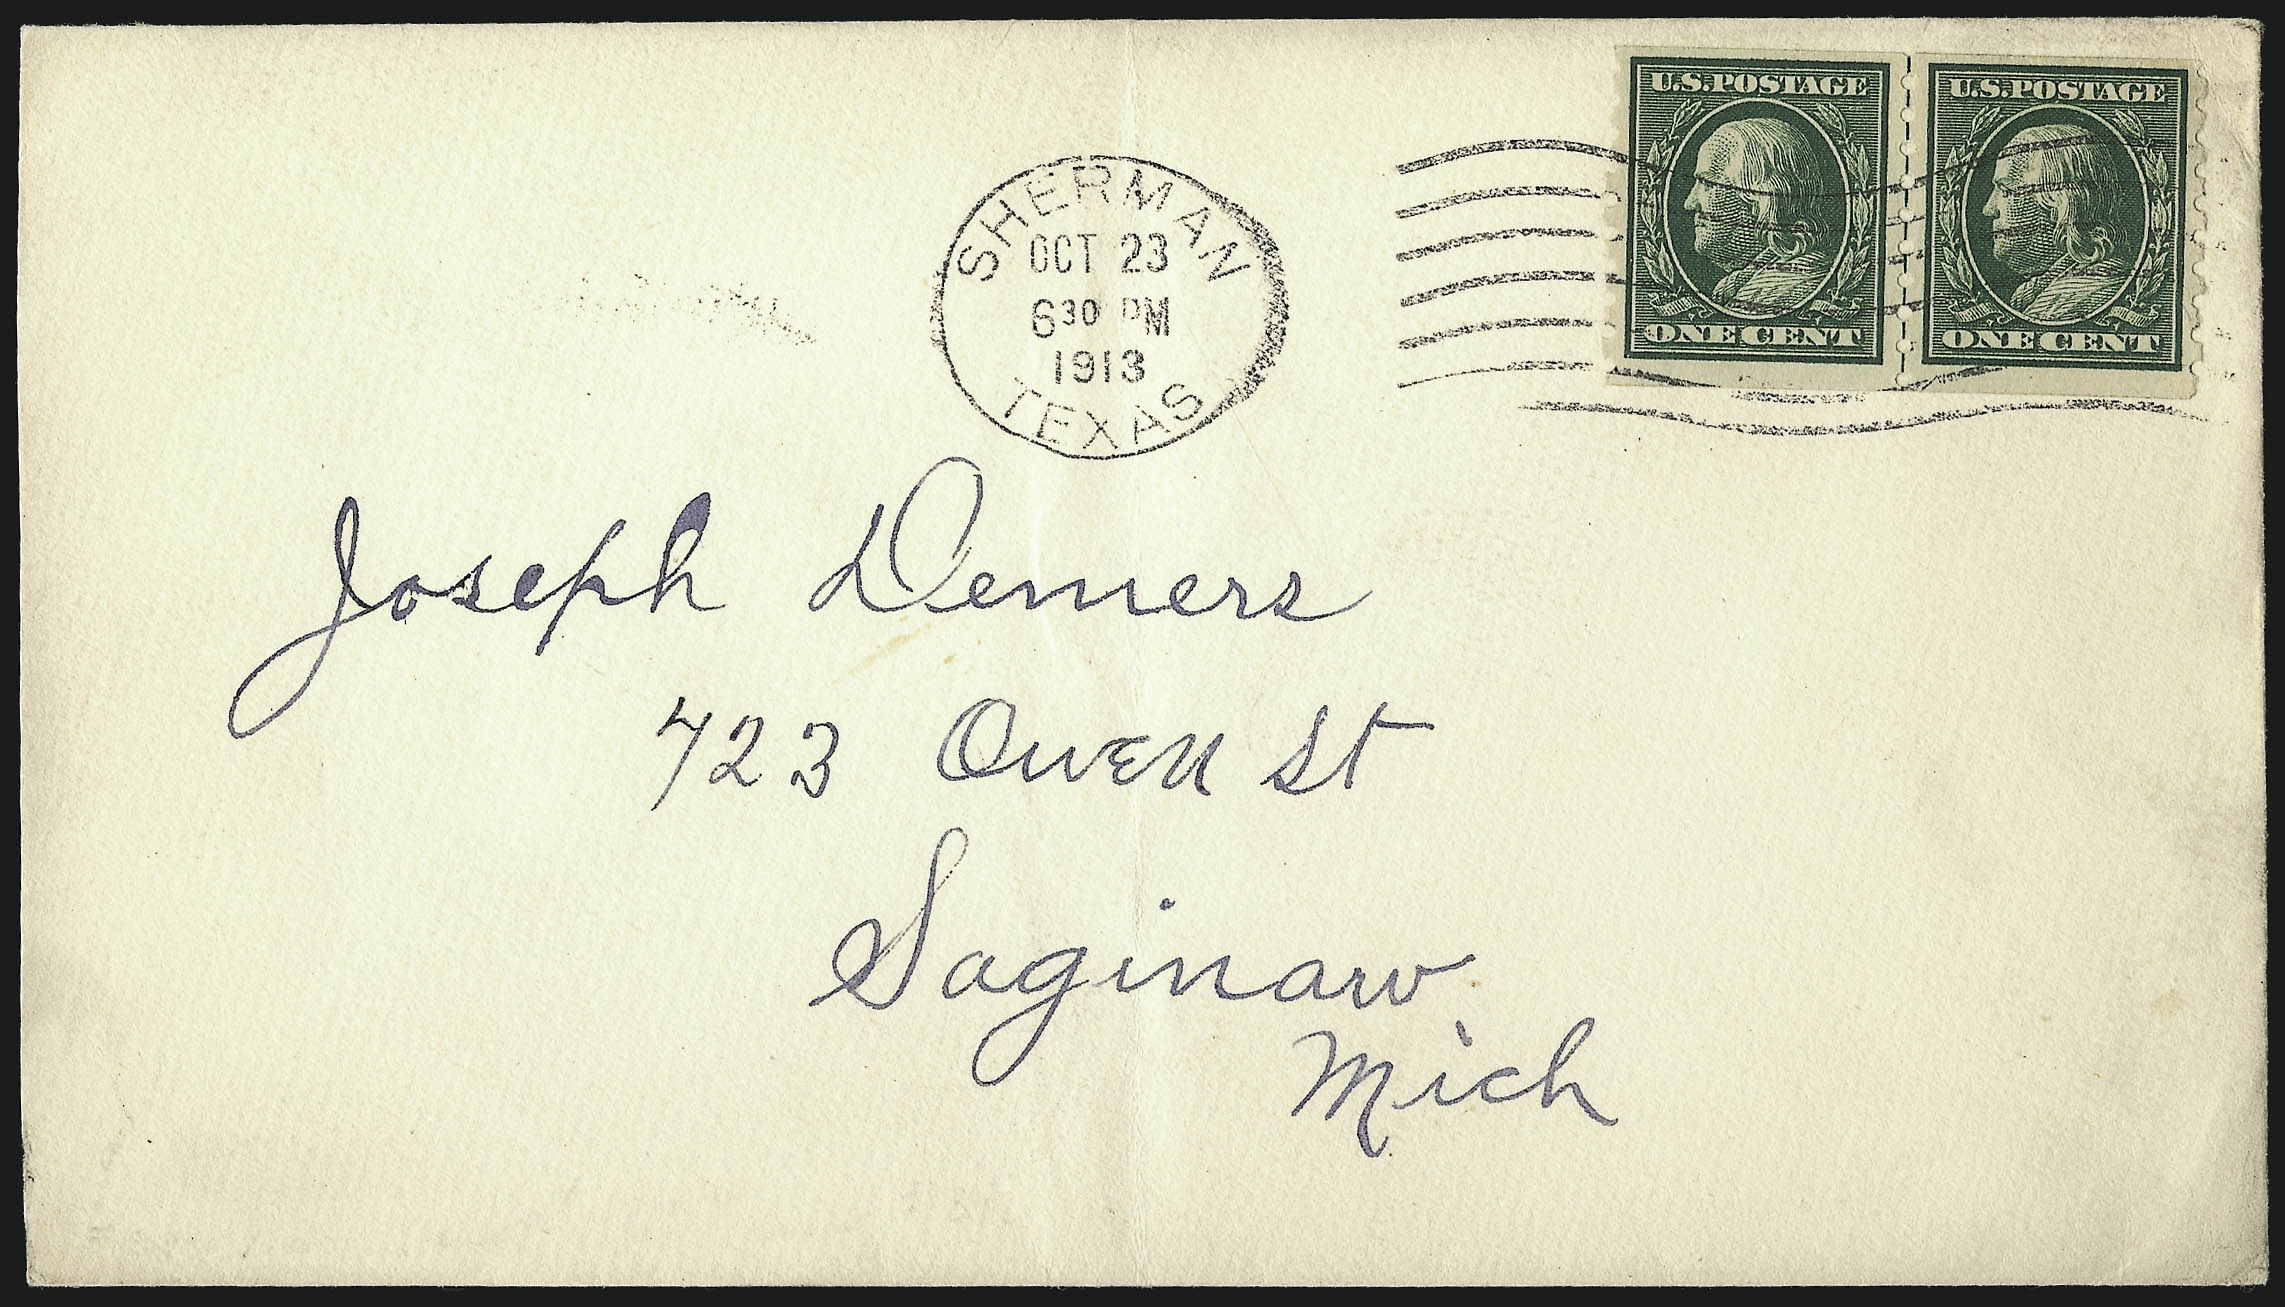 U.S. POSTAGE U.S. POSTAGE
ONE CENT ONE CENT
SHERMAN
OCT 23
6 30 PM
1913
TEXAS
Joseph Demers
723 Owen St
Saginaw
Mich